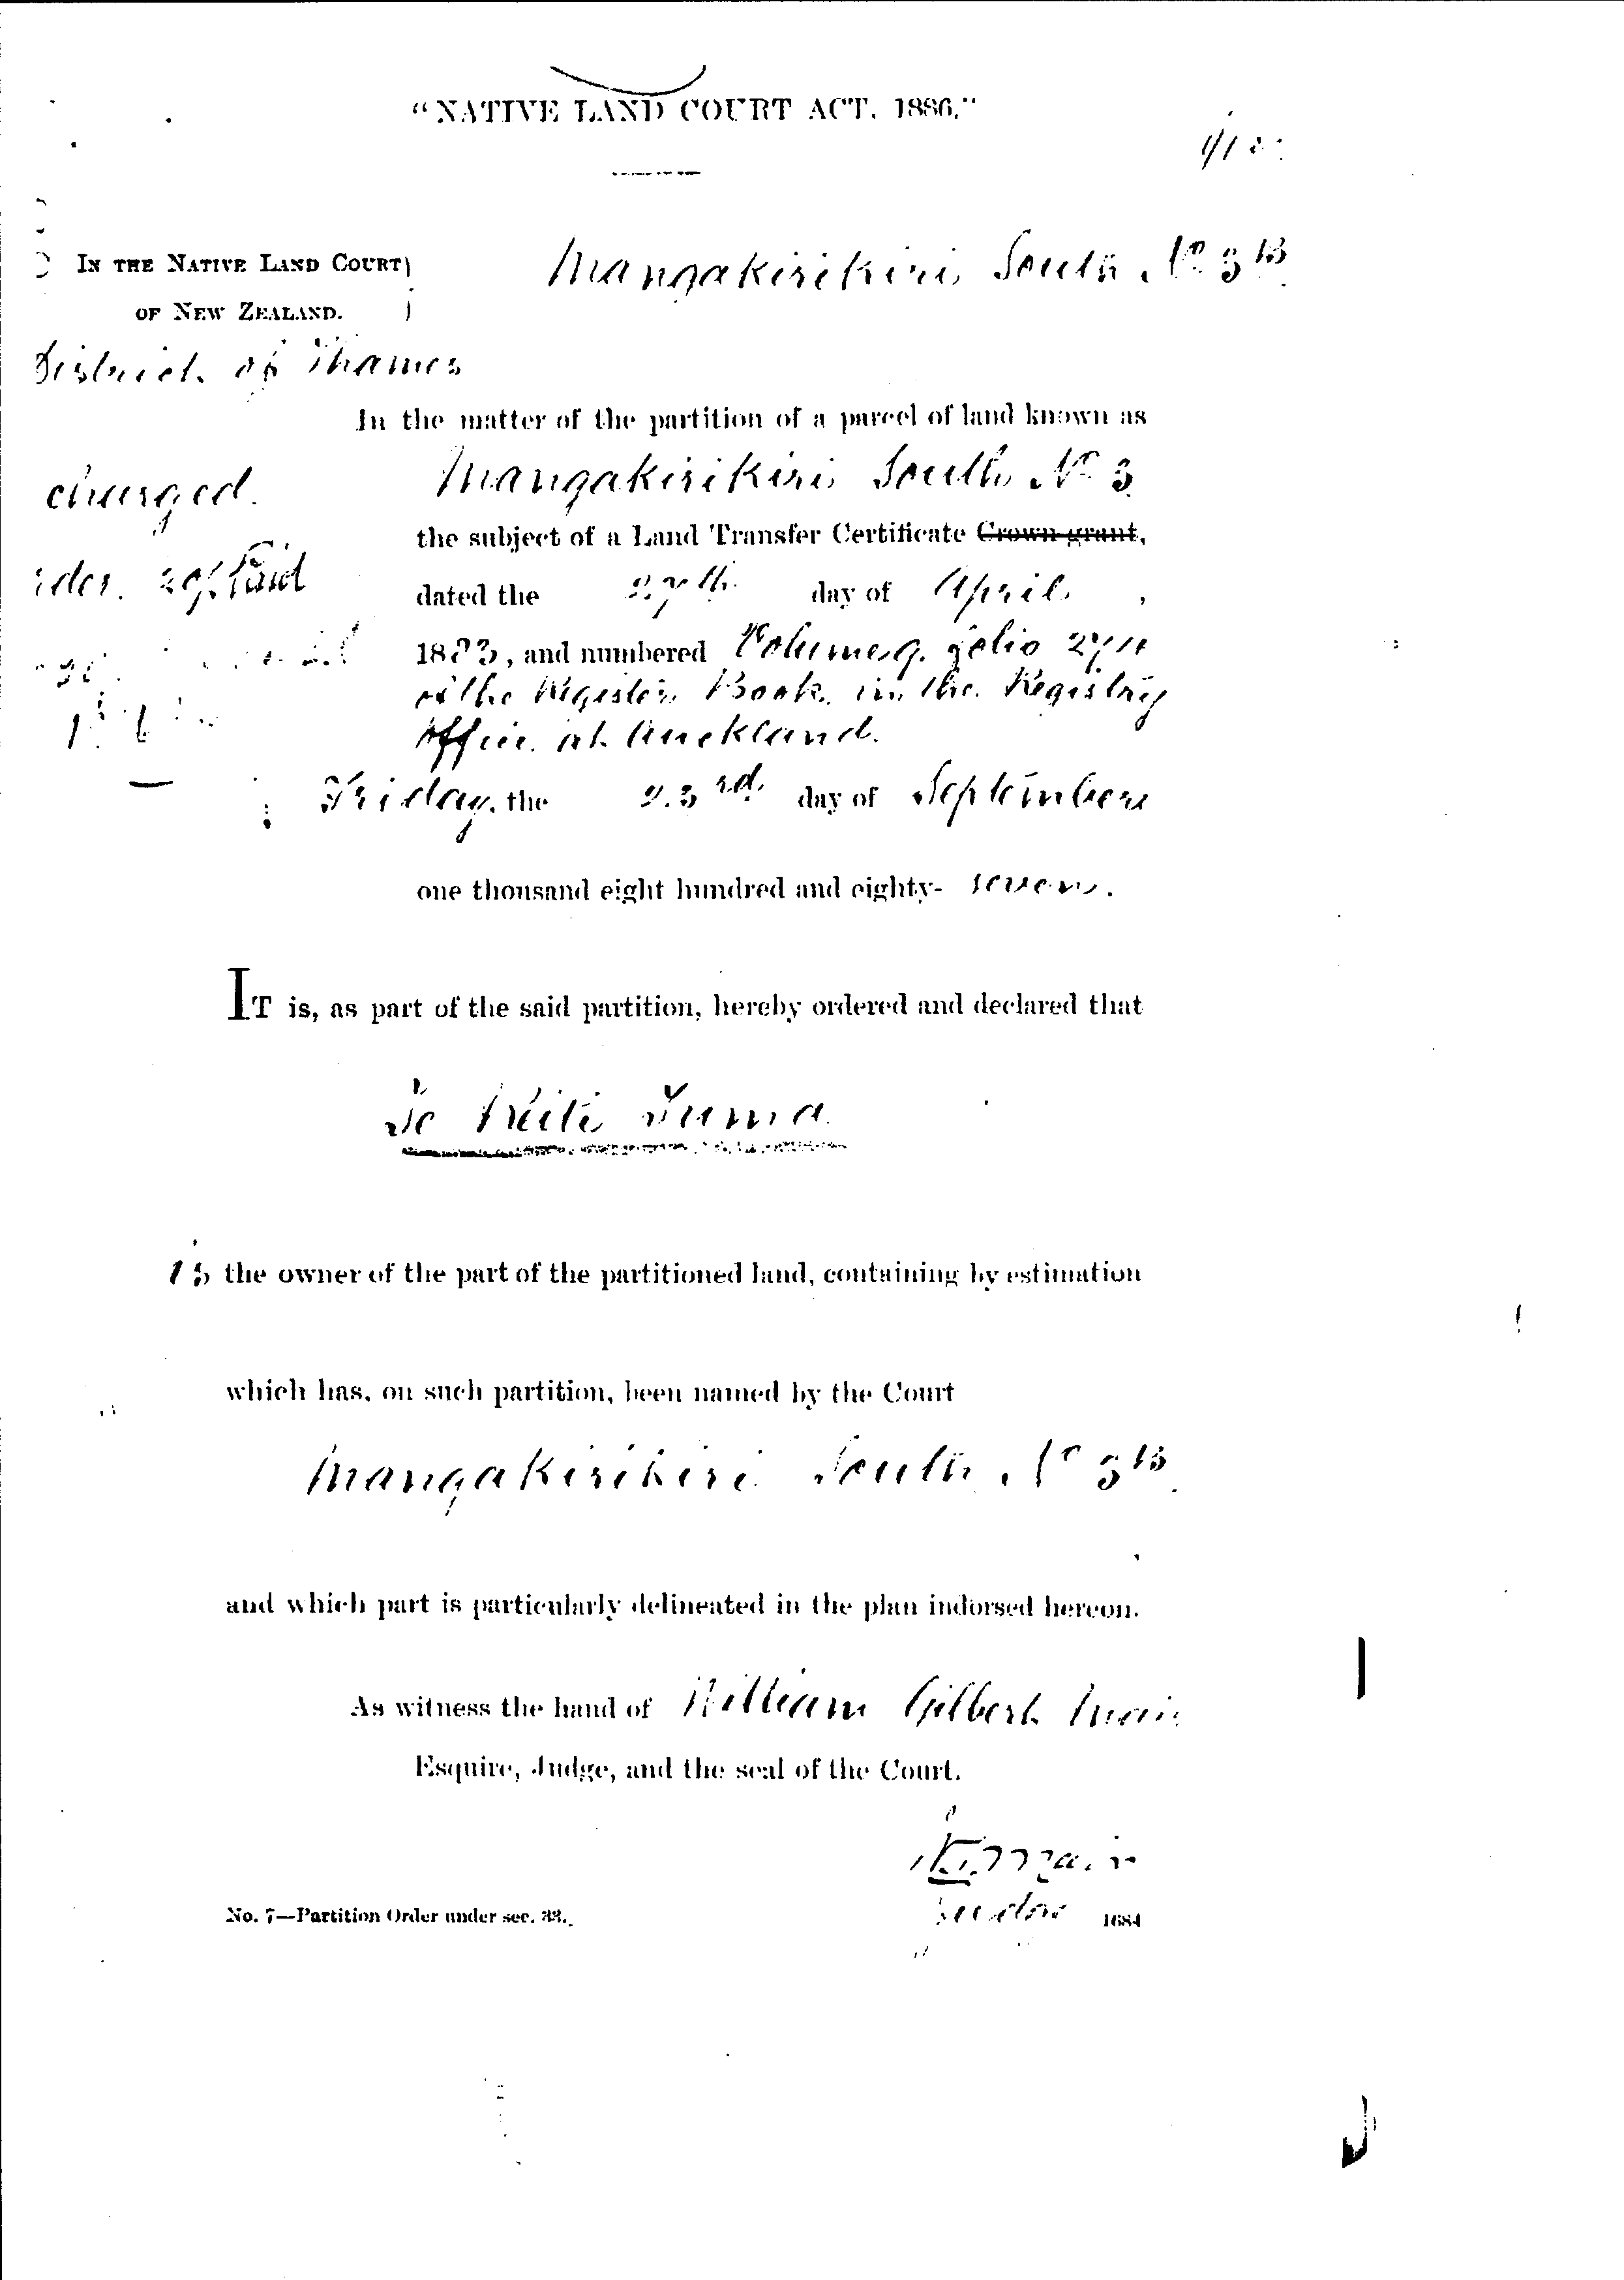 "NATIVE LAND COURT ACT, 1886."
IN THE NATIVE LAND COURT
OF NEW ZEALAND.
Mangakirikiri South No 3B
District of Thames
In the matter of the partition of a parcel of land known as
Mangakirikiri South No 3
charged.
the subject of a Land Transfer Certificate Crown grant,
dated the 27th day of April,
1883, and numbered Volume 9. folio 274
of the Register Book in the Registry
Office at Auckland.
Friday, the 23rd day of September
one thousand eight hundred and eighty- seven.
IT is, as part of the said partition, hereby ordered and declared that
Te Tuma
is the owner of the part of the partitioned land, containing by estimation
which has, on such partition, been named by the Court
Mangakirikiri South No 3B
and which part is particularly delineated in the plan indorsed hereon.
As witness the hand of William Gilbert Mair
Esquire, Judge, and the seal of the Court.
Judge
No. 7—Partition Order under sec. 33.
1684